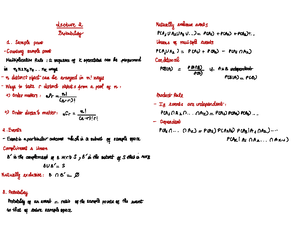 Lecture 2
Probability
1. Sample point
- Counting sample point
Multiplication Rule : a sequence of k operations can be performed
in n₁ n₂ n₃ ... nₖ ways
- n distinct object can be arranged in n! ways
- Ways to take r distinct objects from a part of n :
→ Order matters : ₙPᵣ = n! / (n-r)!
→ Order doesn't matter : ₙCᵣ = n! / (n-r)! r!
2. Events
- Event: a particular outcome which is a subset of sample space.
Compliment & Union
B' is the complement of B w.r.t S , B' is the subset of S that is not B
B ∪ B' = S
Mutually exclusive : B ∩ B' = Ø
3. Probability
Probability of an event is ratio of the sample points of the event
to that of entire sample space.
Mutually exclusive events
P(A₁ ∪ A₂ ∪ A₃ ...) = P(A₁) + P(A₂) + P(A₃) ...
Unions of multiple events
P(A₁ ∪ A₂) = P(A₁) + P(A₂) - P(A₁ ∩ A₂)
Conditional
Product Rule
- If events are independent :
- Dependent